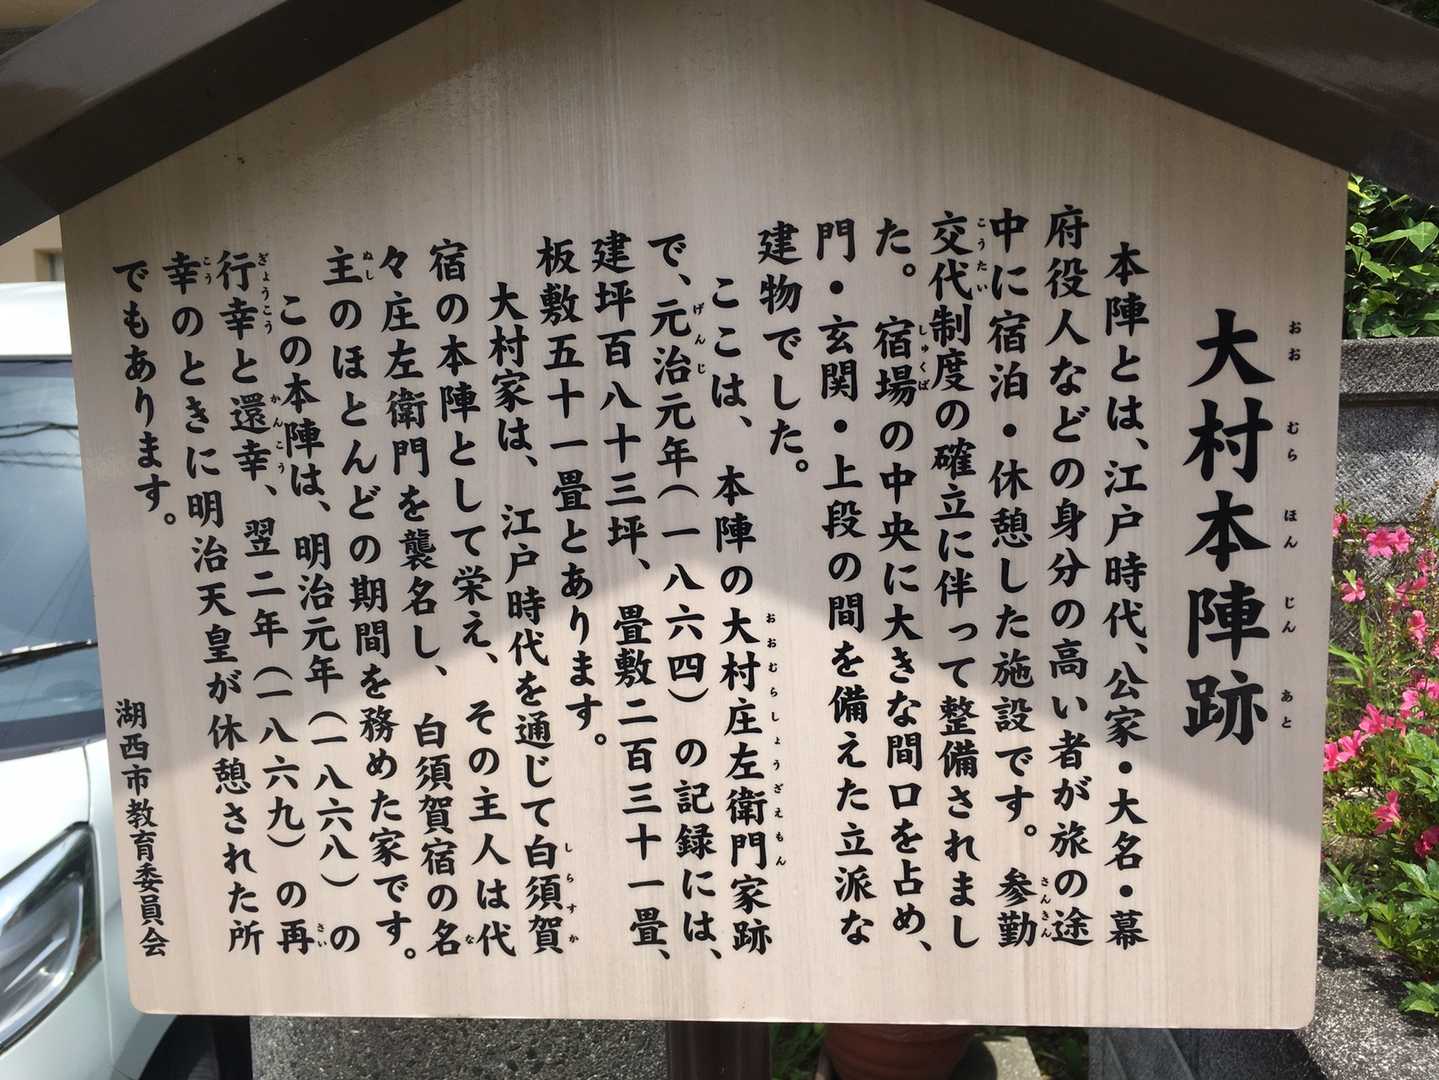 大村本陣跡
おおむらほんじんあと
本陣とは、江戸時代、公家・大名・幕
府役人などの身分の高い者が旅の途
中に宿泊・休憩した施設です。参勤
さんきん
交代制度の確立に伴って整備されまし
こうたい
た。宿場の中央に大きな間口を占め、
しゅくば
門・玄関・上段の間を備えた立派な
建物でした。
ここは、本陣の大村庄左衛門家跡
おおむらしょうざえもん
で、元治元年(一八六四)の記録には、
げんじ
建坪百八十三坪、畳敷二百三十一畳、
板敷五十一畳とあります。
大村家は、江戸時代を通じて白須賀
しらすか
宿の本陣として栄え、その主人は代
々庄左衛門を襲名し、白須賀宿の名
な
主のほとんどの期間を務めた家です。
ぬし
この本陣は、明治元年(一八六八)の
行幸と還幸、翌二年(一八六九)の再
ぎょうこう かんこう さい
幸のときに明治天皇が休憩された所
こう
でもあります。
湖西市教育委員会